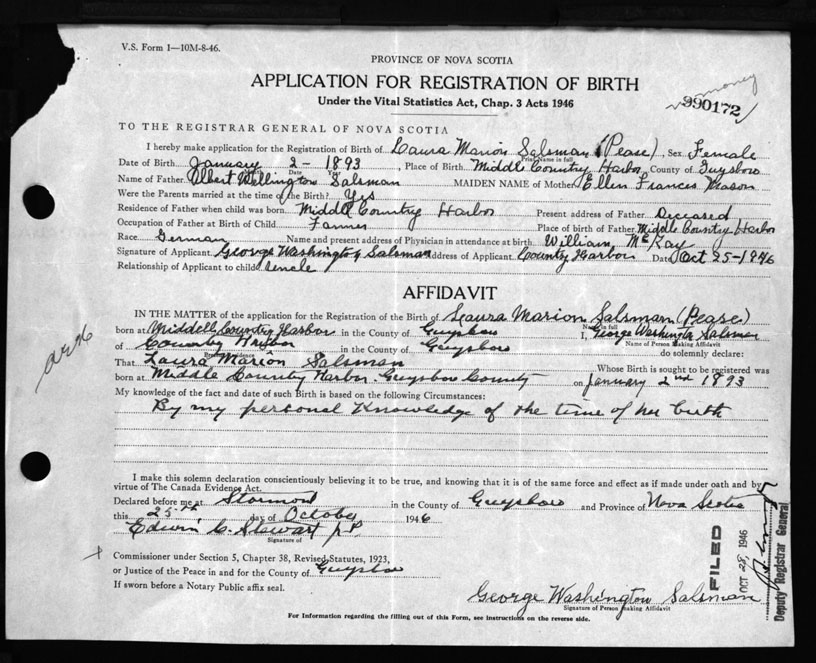 V.S. Form 1—10M-8-46.
PROVINCE OF NOVA SCOTIA
APPLICATION FOR REGISTRATION OF BIRTH
money
Under the Vital Statistics Act, Chap. 3 Acts 1946
990172
TO THE REGISTRAR GENERAL OF NOVA SCOTIA
I hereby make application for the Registration of Birth of Laura Marion Salsman (Pease), Sex Female
Print Name in full
Date of Birth January 2 - 1893, Place of Birth Middle Country Harbor County of Guysboro
Date Year
Name of Father Albert Wellington Salsman MAIDEN NAME of Mother Ellen Frances Mason
Were the Parents married at the time of the Birth? Yes
Residence of Father when child was born Middle Country Harbor Present address of Father Deceased
Occupation of Father at Birth of Child Farmer Place of birth of Father Middle Country Harbor
Race German Name and present address of Physician in attendance at birth William McKay
Signature of Applicant George Washington Salsman Address of Applicant Country Harbor Date Oct 25-1946
Relationship of Applicant to child uncle
AFFIDAVIT
IN THE MATTER of the application for the Registration of Birth of Laura Marion Salsman (Pease)
Name in full
born at Middell Country Harbor in the County of Guysboro I, George Washington Salsman
Name of Person Making Affidavit
of Country Harbor in the County of Guysboro do solemnly declare:
That Laura Marion Salsman Whose Birth is sought to be registered was
born at Middle Country Harbor Guysboro County on January 2nd 1893
My knowledge of the fact and date of such Birth is based on the following Circumstances:
By my personal Knowledge of the time of her birth
I make this solemn declaration conscientiously believing it to be true, and knowing that it is of the same force and effect as if made under oath and by
virtue of The Canada Evidence Act.
Declared before me at Stormont in the County of Guysboro and Province of Nova Scotia
this 25th day of October 1946
Edwin C. Stewart J.P.
Signature of
Commissioner under Section 5, Chapter 38, Revised Statutes, 1923,
or Justice of the Peace in and for the County of Guysboro
If sworn before a Notary Public affix seal.
George Washington Salsman
Signature of Person Making Affidavit
For Information regarding the filling out of this Form, see instructions on the reverse side.
FILED
OCT 28 1946
Deputy Registrar General